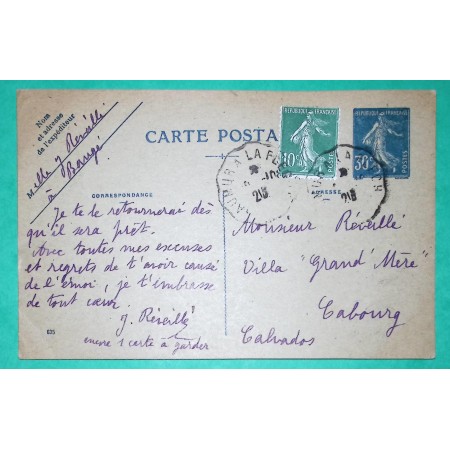 Nom
et adresse
de l'expéditeur
Mlle J Réveillé
à Baugé
CARTE POSTA
REPUBLIQUE FRANÇAISE
10c
POSTES
REPUBLIQUE FRANÇAISE
30c
POSTES
SAUMUR A LA FL
CORRESPONDANCE
ADRESSE
Je te le retournerai dès
qu'il sera prêt.
Avec toutes mes excuses
et regrets de t'avoir causé
de l'émoi, je t'embrasse
de tout cœur.
J. Réveillé
encore 1 carte à garder
Monsieur Réveillé
Villa "Grand' Mère"
Cabourg
Calvados